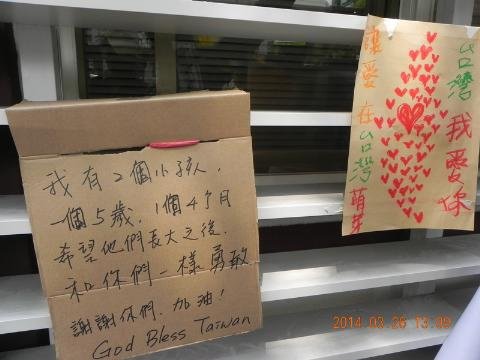 我有2個小孩,
一個5歲,1個4个月
希望他們長大之後,
和你們一樣勇敢
謝謝你們,加油!
God Bless Taiwan
台灣我愛你
讓愛在台灣萌芽
2014.03.26